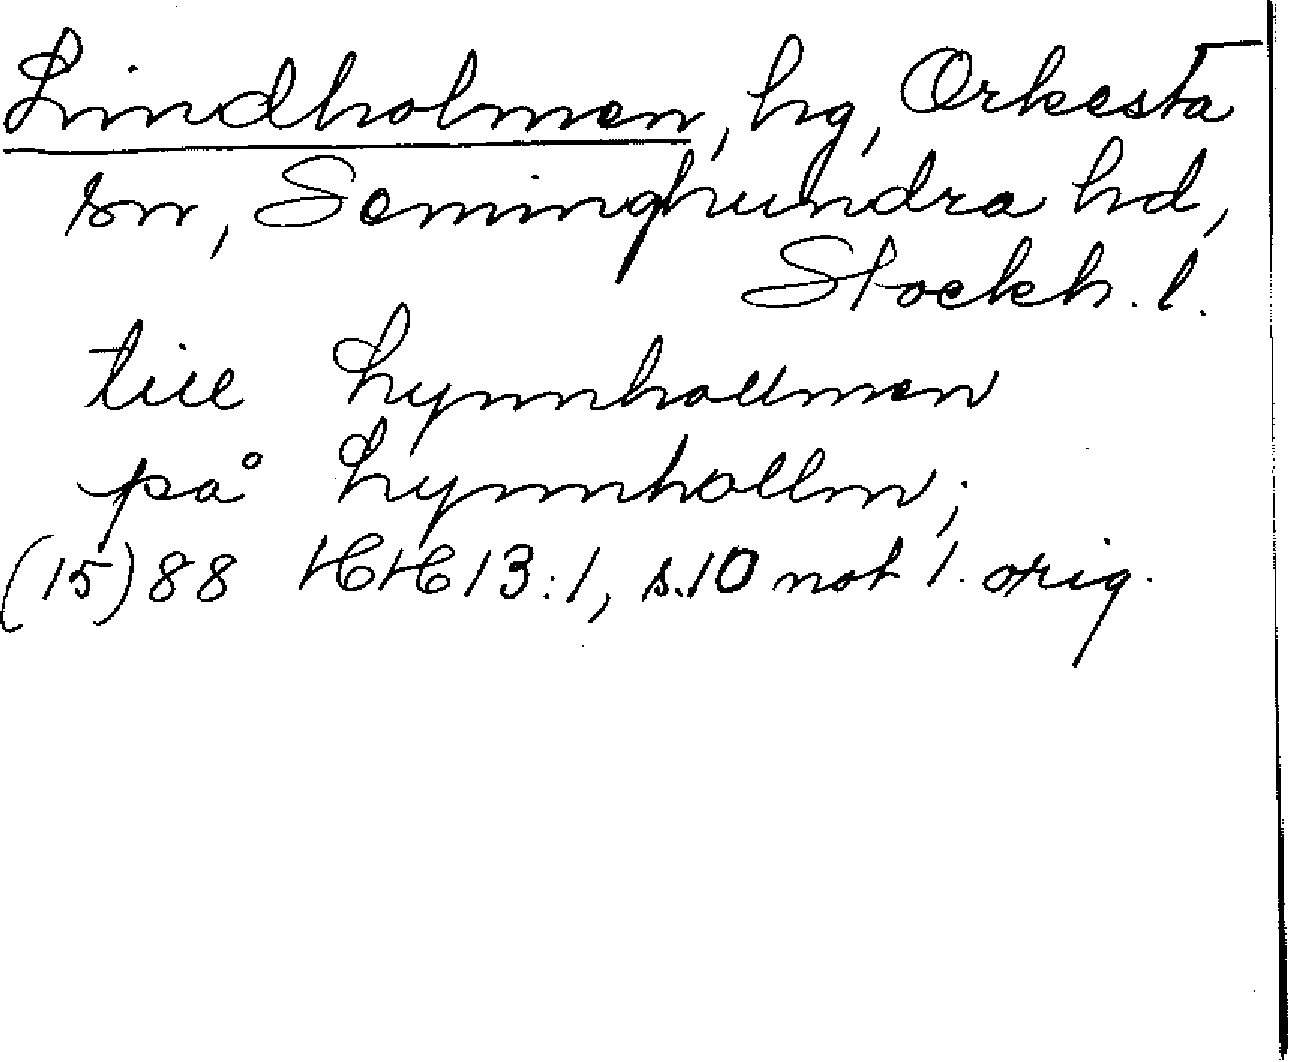 Lindholmen, hg, Orkesta
sn, Seminghundra hd,
Stockh. l.
till Lynnhollmen
på Lynnhollm;
(15)88 HH 13:1, s.10 not 1. orig.